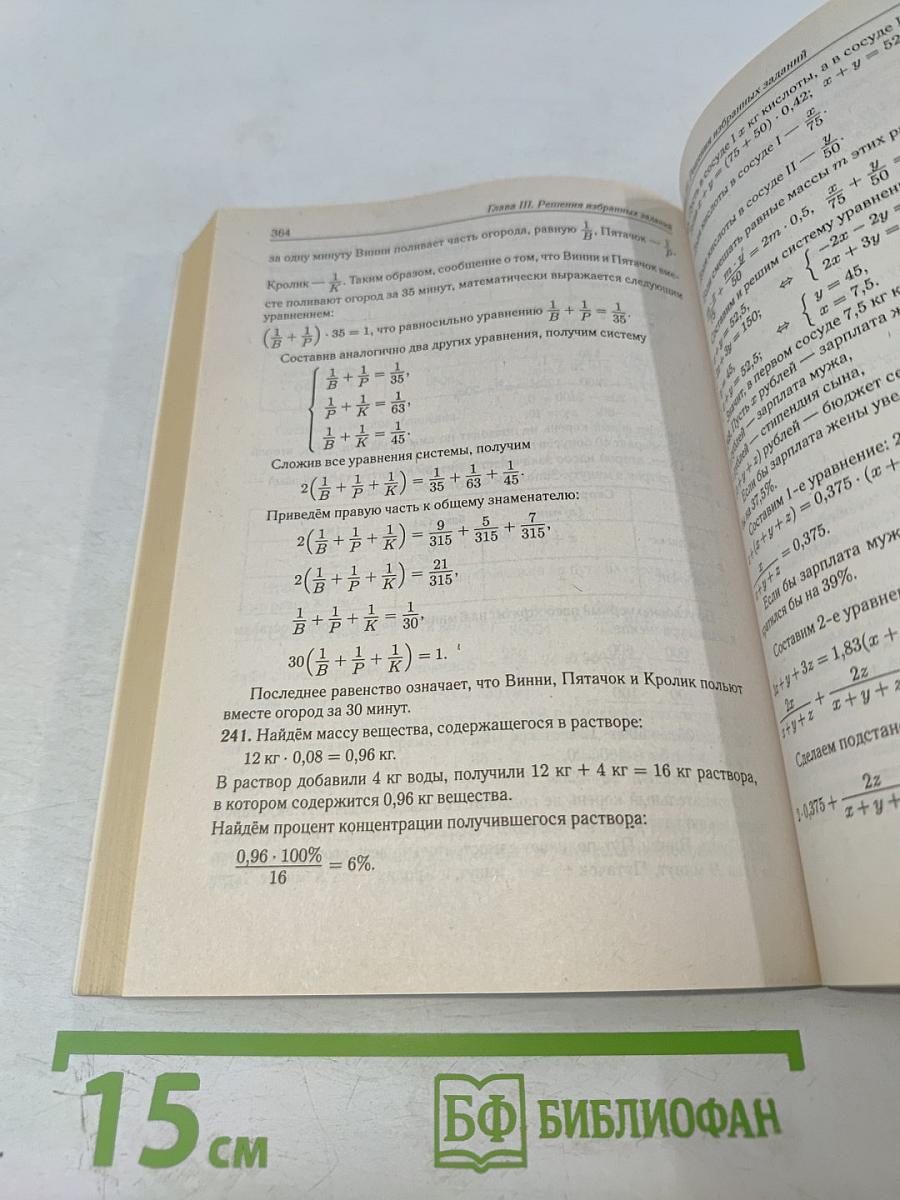 364
Глава III. Решения избранных заданий
за одну минуту Винни поливает часть огорода, равную 1/B, Пятачок — 1/P,
Кролик — 1/K. Таким образом, сообщение о том, что Винни и Пятачок вме-
сте поливают огород за 35 минут, математически выражается следующим
уравнением:
(1/B + 1/P) · 35 = 1, что равносильно уравнению 1/B + 1/P = 1/35.
Составив аналогично два других уравнения, получим систему
1/B + 1/P = 1/35,
1/P + 1/K = 1/63,
1/B + 1/K = 1/45.
Сложив все уравнения системы, получим
2(1/B + 1/P + 1/K) = 1/35 + 1/63 + 1/45.
Приведём правую часть к общему знаменателю:
2(1/B + 1/P + 1/K) = 9/315 + 5/315 + 7/315,
2(1/B + 1/P + 1/K) = 21/315,
1/B + 1/P + 1/K = 1/30,
30(1/B + 1/P + 1/K) = 1.
Последнее равенство означает, что Винни, Пятачок и Кролик польют
вместе огород за 30 минут.
241. Найдём массу вещества, содержащегося в растворе:
12 кг · 0,08 = 0,96 кг.
В раствор добавили 4 кг воды, получили 12 кг + 4 кг = 16 кг раствора,
в котором содержится 0,96 кг вещества.
Найдём процент концентрации получившегося раствора:
0,96 · 100%/16 = 6%.
избранных заданий
в сосуде I x кг кислоты, а в сосуде
x + y = (75 + 50) · 0,42; x + y = 52
кислоты в сосуде I — x/75.
кислоты в сосуде II — y/50.
смешать равные массы m этих
m · y/50 = 2m · 0,5, x/75 + y/50 =
и решим систему уравнени
−2x − 2y =
2x + 3y =
y = 45,
x = 7,5.
Значит, в первом сосуде 7,5 кг
Пусть x рублей — зарплата ж
— зарплата мужа,
— стипендия сына,
рублей — бюджет се
Если бы зарплата жены уве
на 37,5%.
Составим 1-е уравнение: 2
(x + y + z) = 0,375 · (x +
x/x+y+z = 0,375.
Если бы зарплата муж
бы на 39%.
Составим 2-е уравнен
+y+3z = 1,83(x +
2x/x+y+z + 2z/x + y + z
Сделаем подстан
0,375 + 2z/x + y +
15 см
БФ БИБЛИОФАН